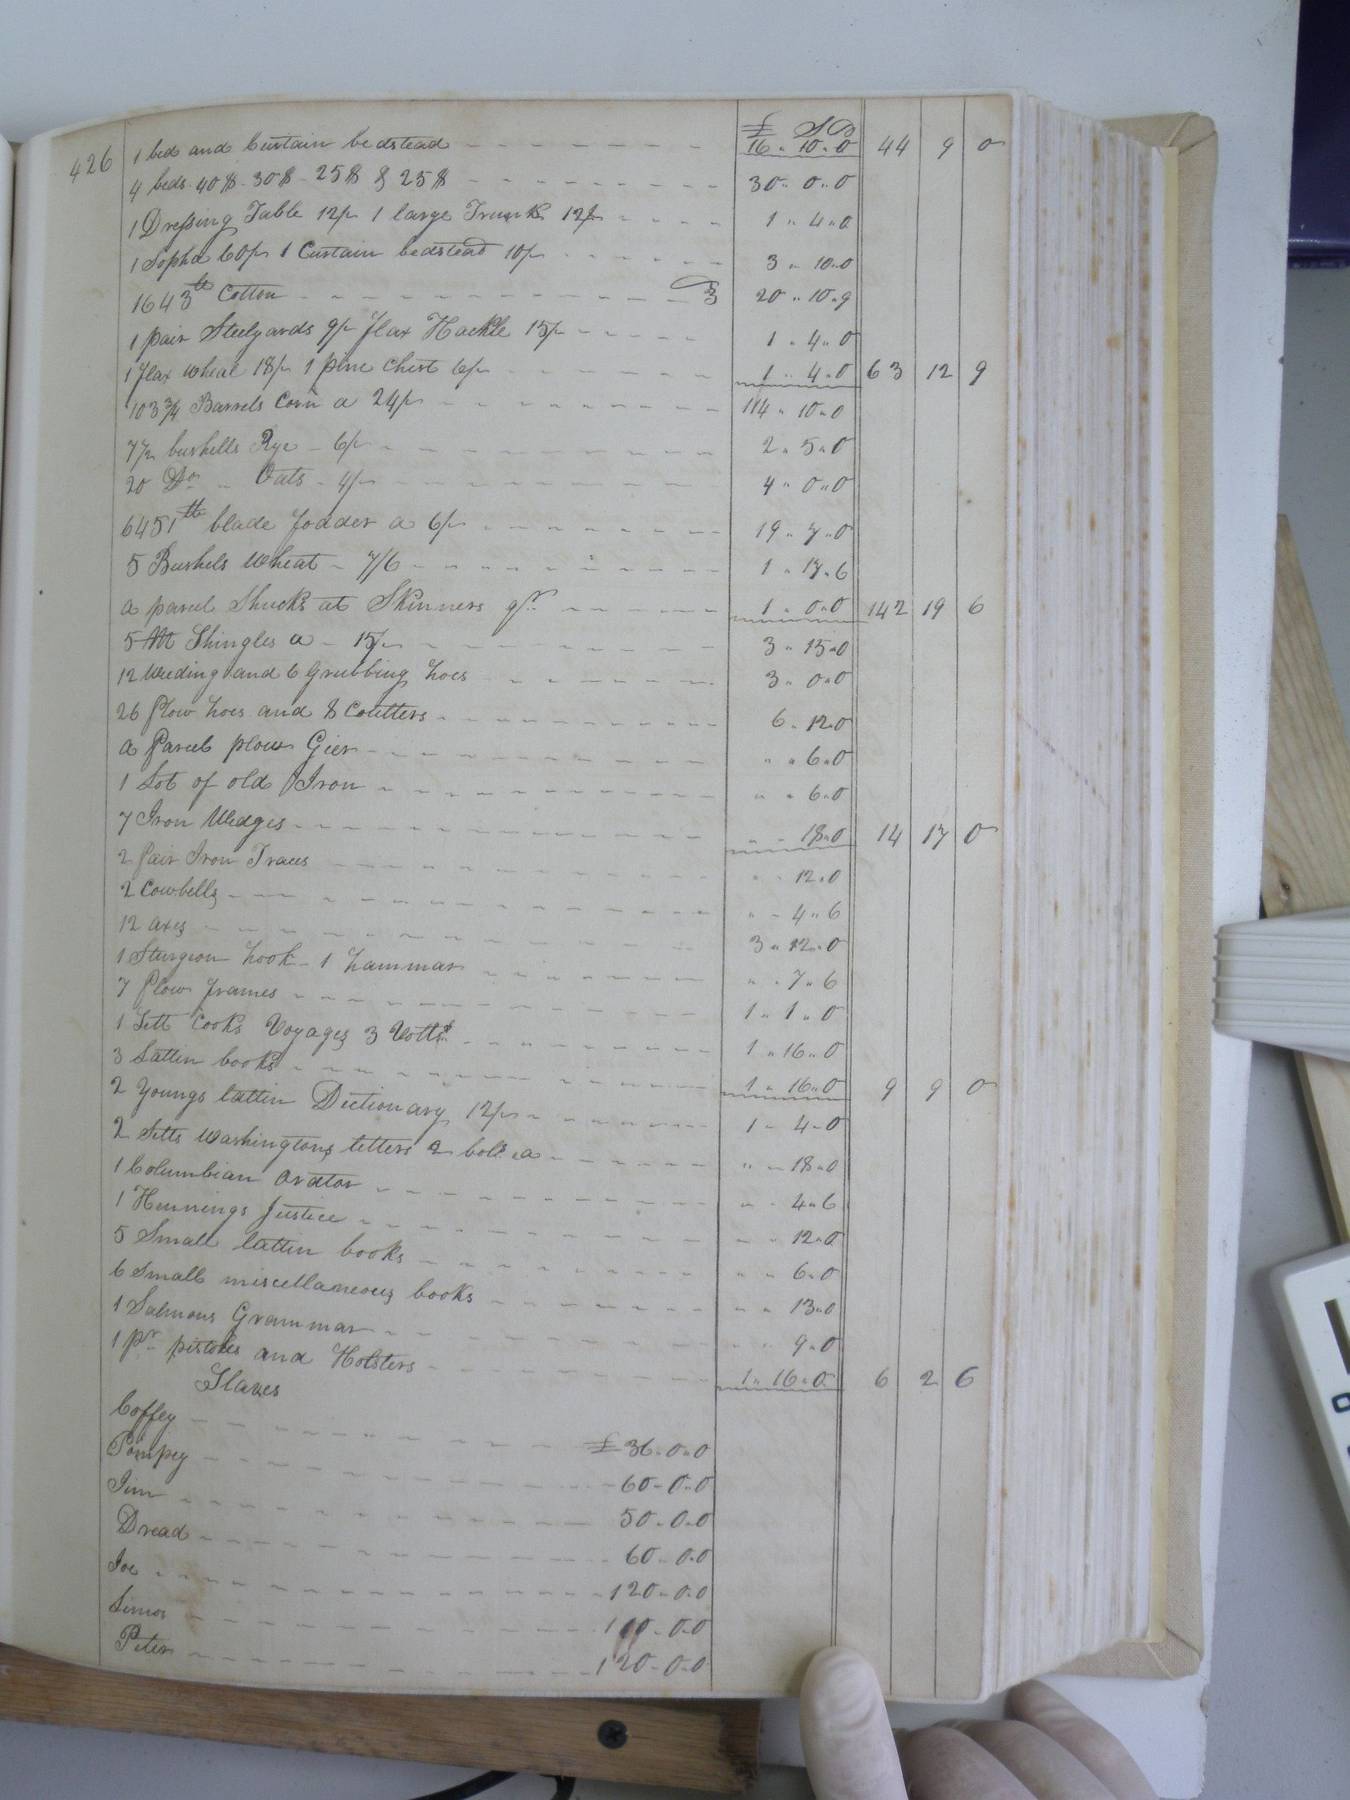 426
£ S D
1 bed and Curtain bedstead 16 " 10 " 0 44 9 0
4 beds 40$ - 30$ - 25$ & 25$ 30 " 0 " 0
1 Dressing Table 12/- 1 large Trunk 12/- 1 " 4 " 0
1 Sopha 60/- 1 Curtain bedstead 10/- 3 " 10 " 0
1643 lb Cotton 3 20 " 10 " 9
1 pair Steelyards 9/- flax Hackle 15/- 1 " 4 " 0
1 flax wheal 18/- 1 pine Chest 6/- 1 " 4 " 0 63 12 9
103 3/4 Barrels Corn a 24/- 114 " 10 " 0
7 1/2 bushells Rye - 6/- 2 " 5 " 0
20 Do " Oats - 4/- 4 " 0 " 0
6451 lb blade fodder a 6/- 19 " 7 " 0
5 Bushels Wheat - 7/6 1 " 17 " 6
a parcel Shucks at Skinners qr. 1 " 0 " 0 142 19 6
5 M Shingles a - 15/- 3 " 15 " 0
12 Weeding and 6 Grubbing hoes 3 " 0 " 0
26 Plow hoes and 8 Coulters 6 " 12 " 0
a Parcel plow Gier " " 6 " 0
1 Lot of old Iron " " 6 " 0
7 Iron Wedges " " 18 " 0 14 17 0
2 Pair Iron Traces " " 12 " 0
2 Cowbells " " 4 " 6
12 axes 3 " 12 " 0
1 Sturgeon hook - 1 hammar " " 7 " 6
7 Plow frames 1 " 1 " 0
1 Sett Cooks Voyages 3 Volls 1 " 16 " 0
3 Lattin books 1 " 16 " 0 9 9 0
2 Youngs lattin Dictionary 12/- 1 " 4 " 0
2 Setts Washingtons letters 2 a " " 18 " 0
1 Columbian Orator " " 4 " 6
1 Hennings Justice " " 12 " 0
5 Small lattin books " " 6 " 0
6 Small miscellaneous books " " 13 " 0
1 Salmons Grammar " " 9 " 0
1 pr. pistoles and Holsters 1 " 16 " 0 6 2 6
Slaves
Coffey £36 - 0 - 0
Pompey 60 - 0 - 0
Jim 50 - 0 - 0
Dread 60 - 0 - 0
Joe 120 - 0 - 0
Simon 110 - 0 - 0
Peter 120 - 0 - 0